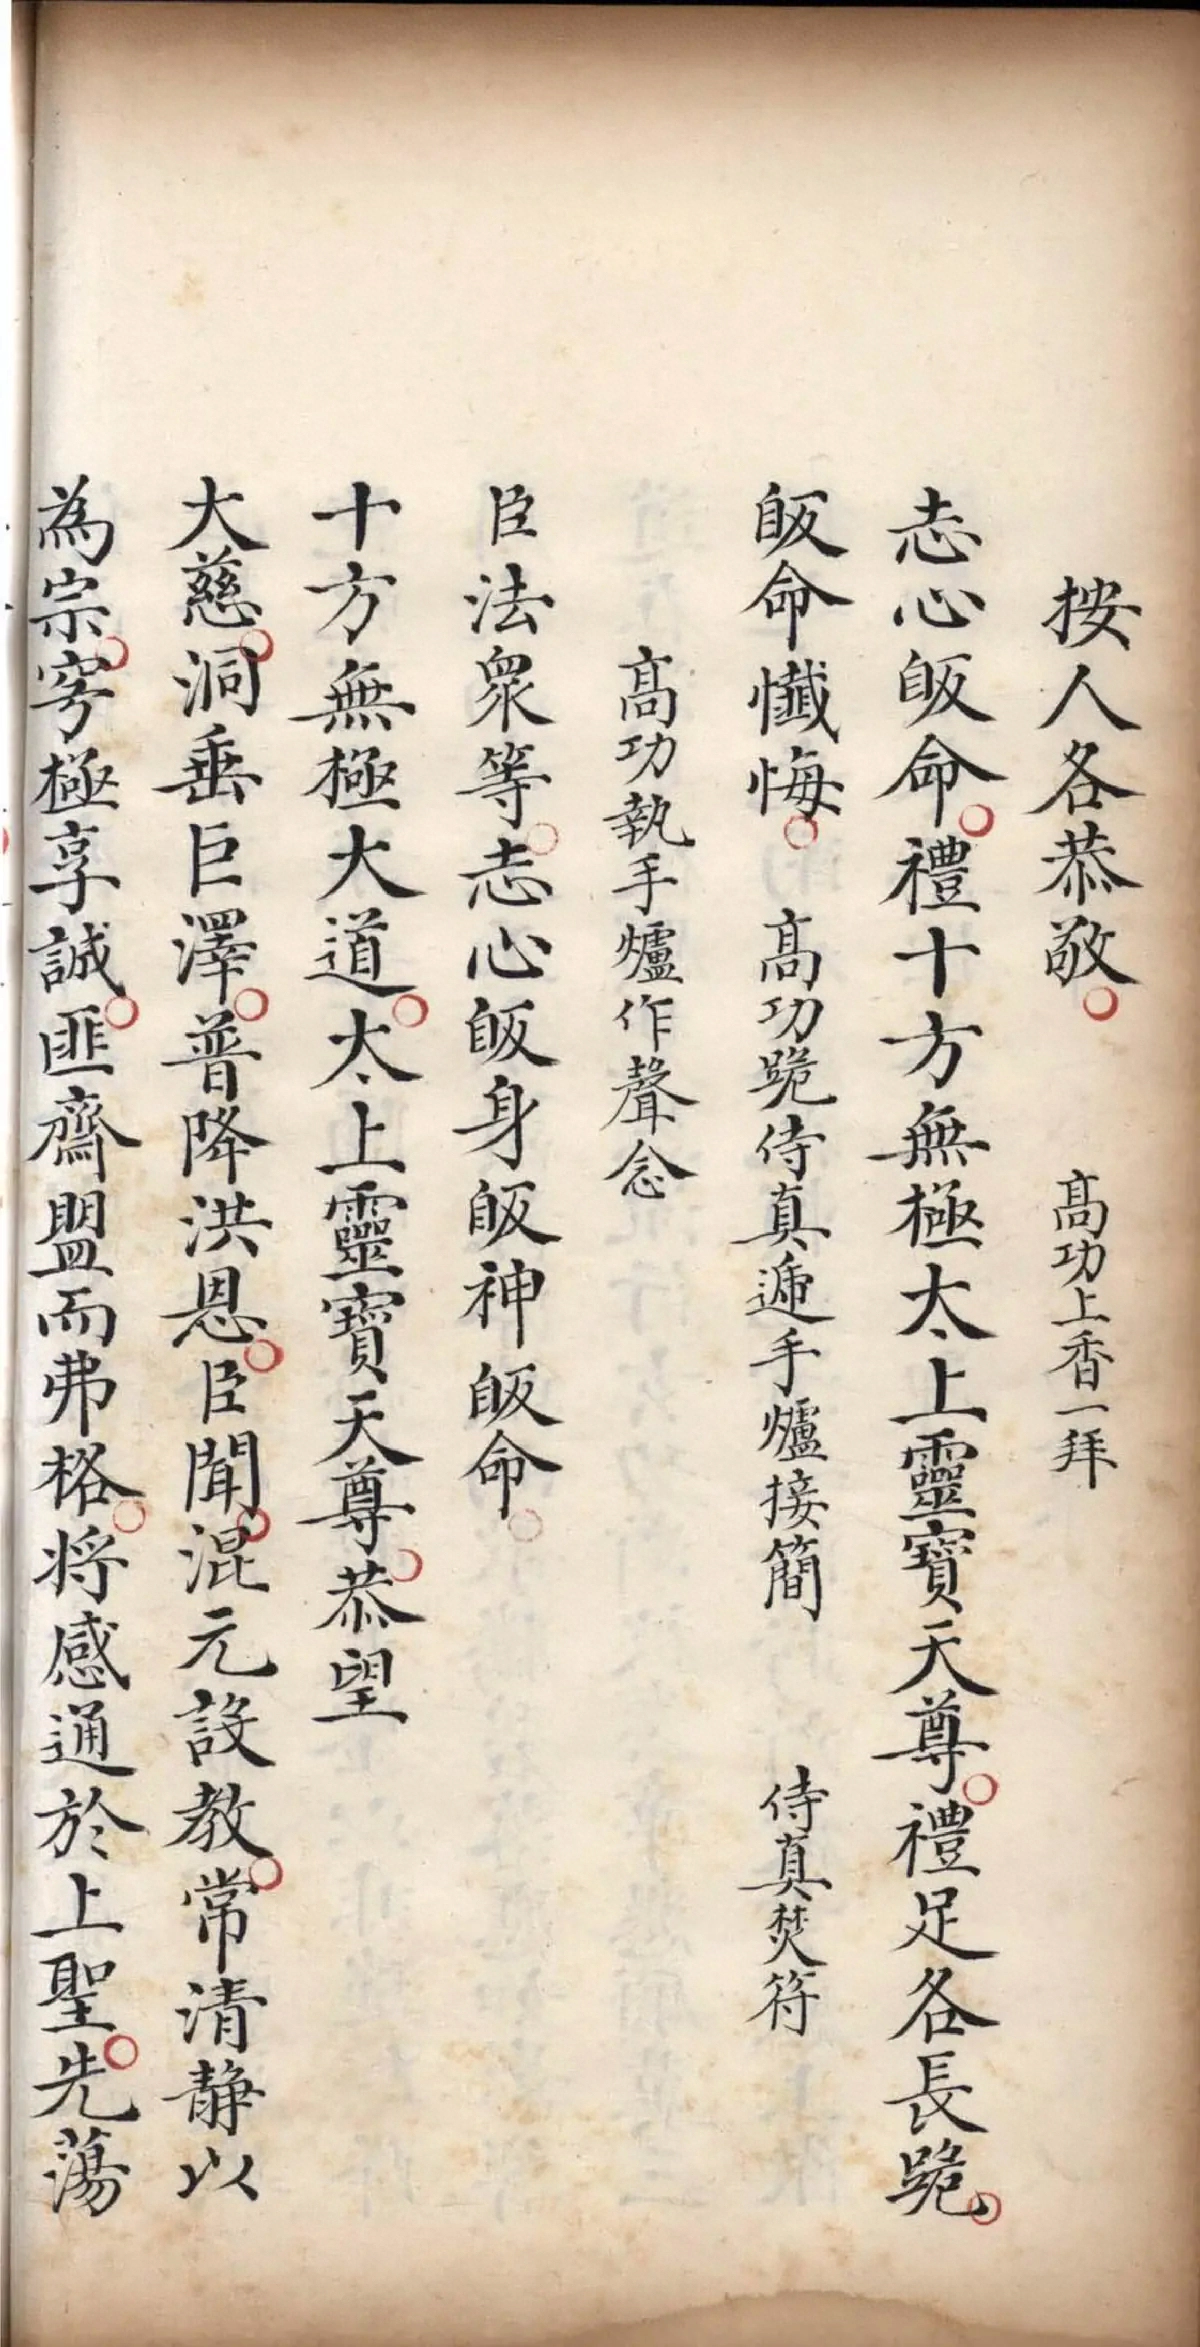 按人各恭敬○　高功上香一拜
志心皈命○禮十方無極太上靈寶天尊○禮足各長跪○
皈命懺悔○　高功跪侍真遞手爐接簡　侍真焚符
高功執手爐作聲念
臣法衆等○志心皈身皈神皈命○
十方無極大道○太上靈寶天尊○恭望
大慈○洞垂巨澤○普降洪恩○臣聞○混元設教○常清静以
為宗○穹極享誠○匪齋盟而弗格○將感通於上聖○先蕩